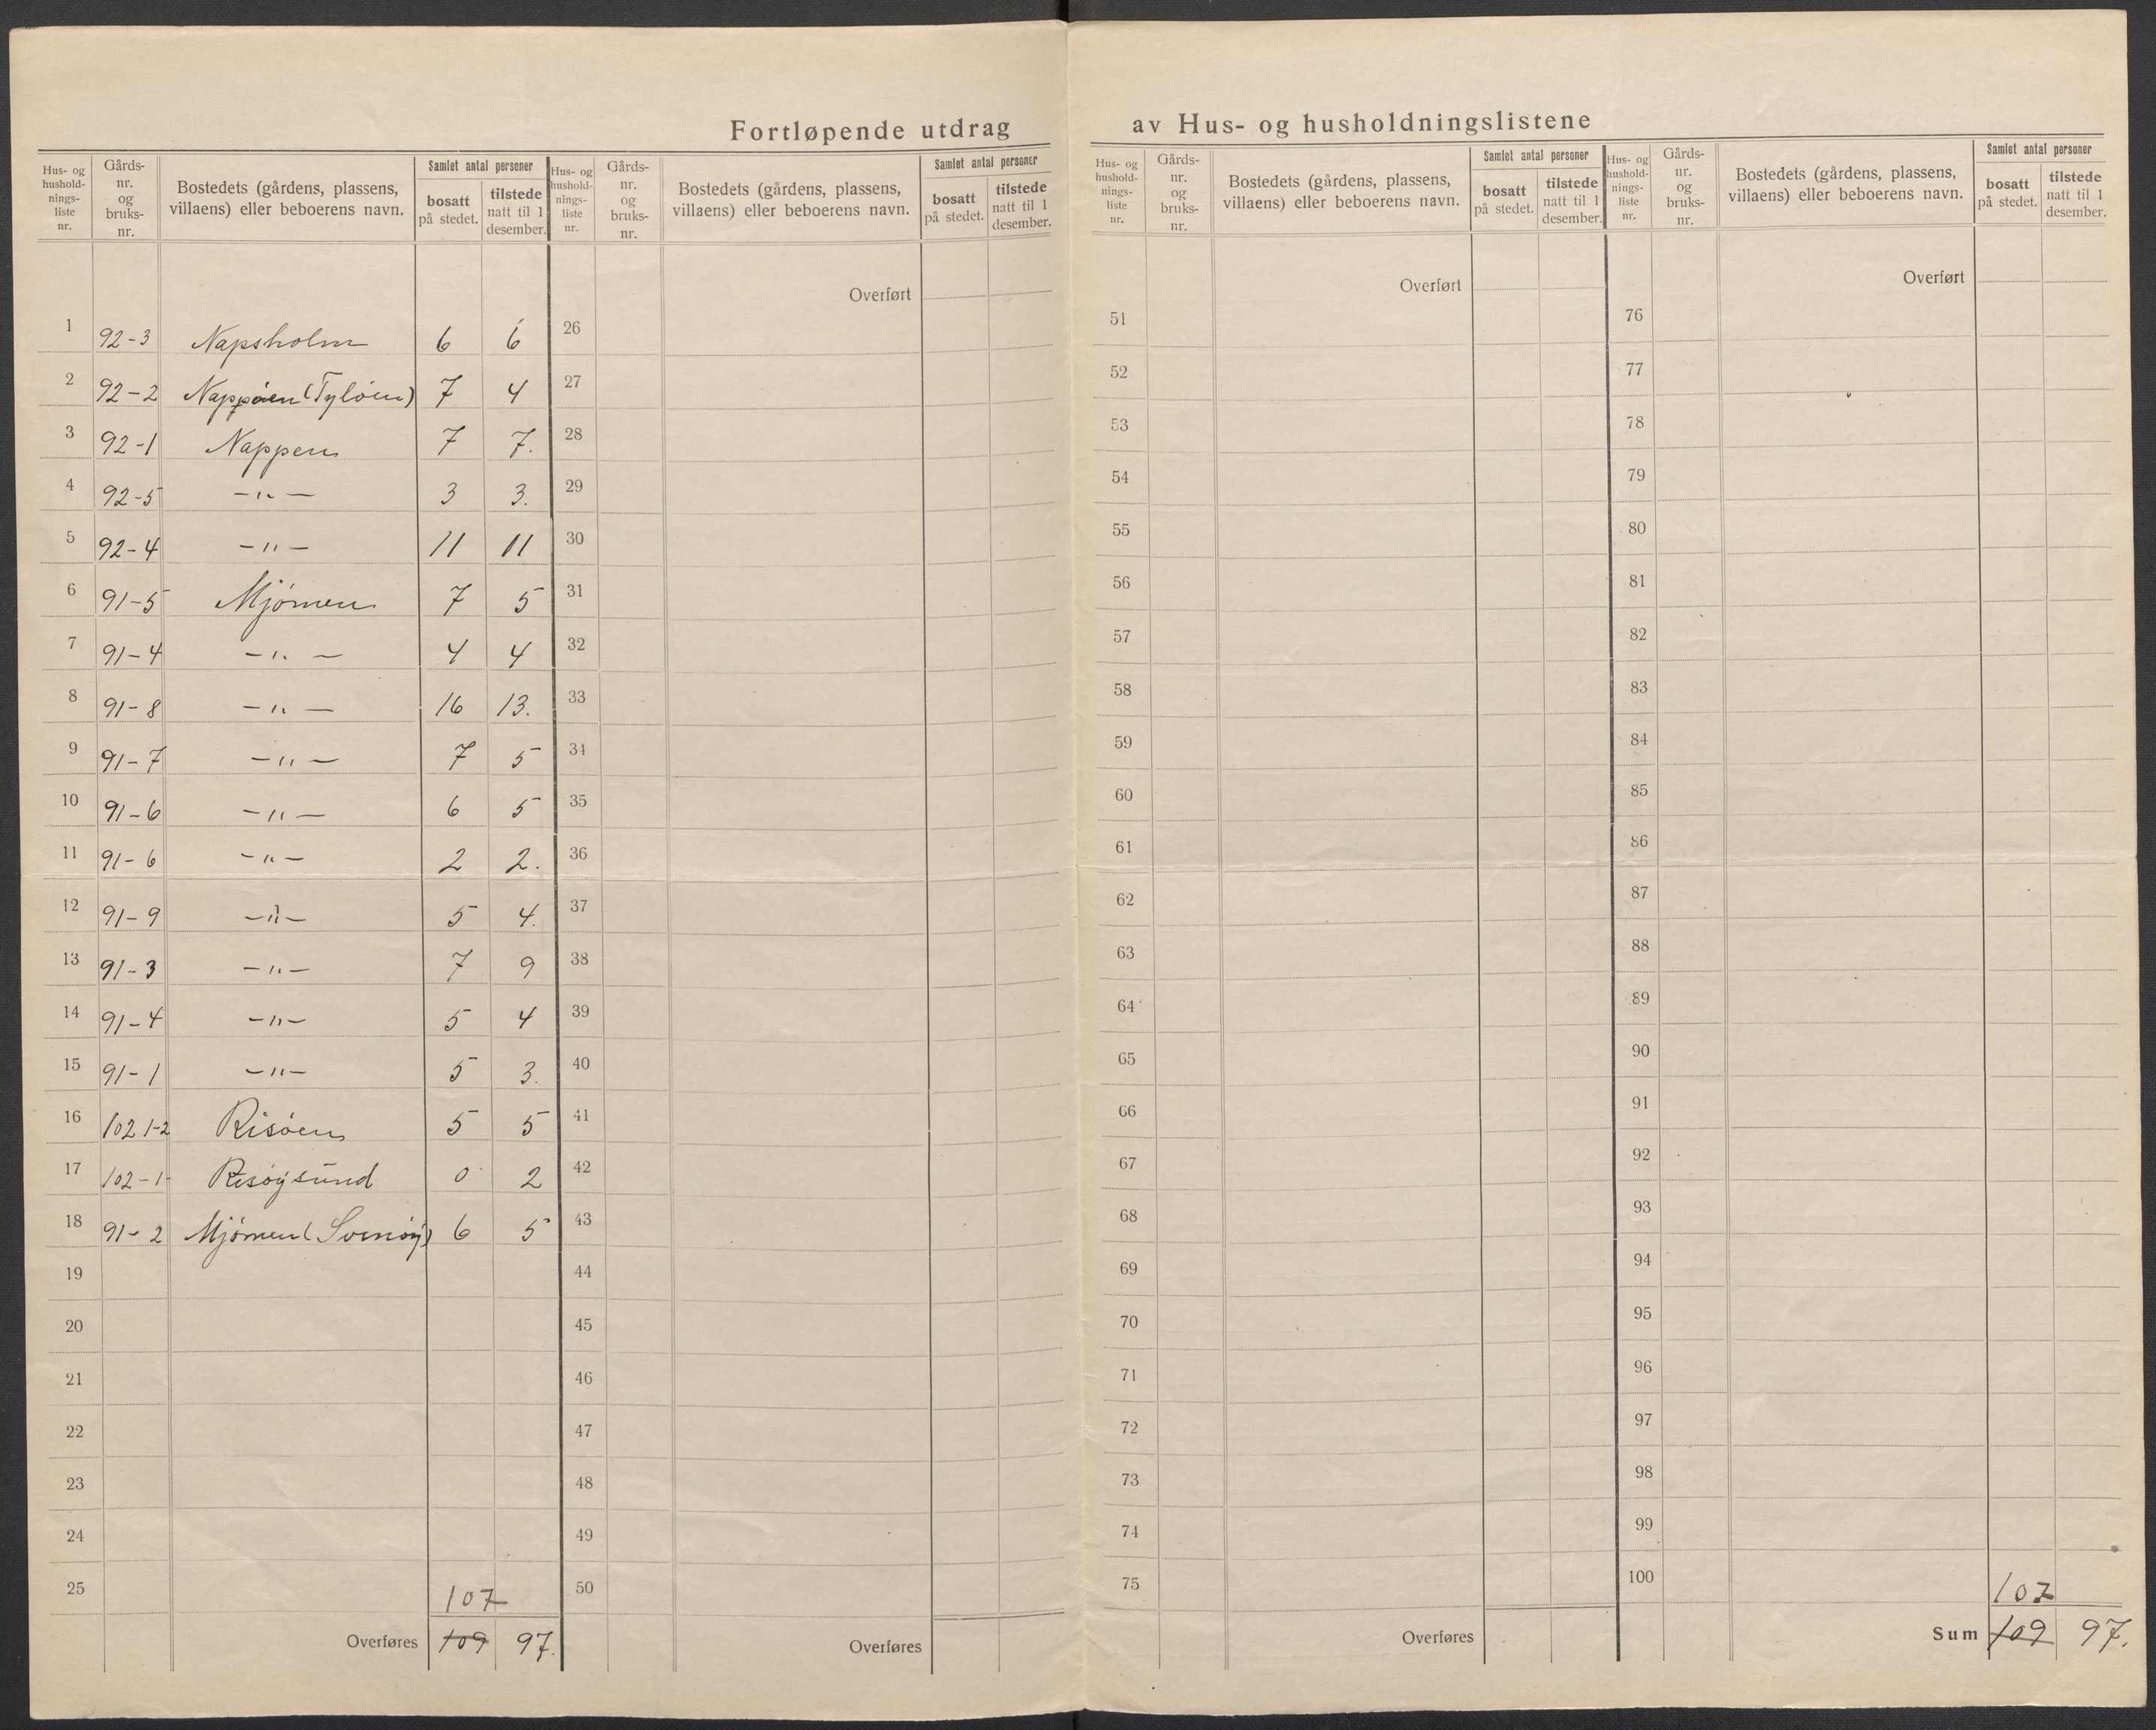 Fortløpende utdrag av Hus- og husholdningslistene
Hus- og hushold-nings-liste nr. | Gårds-nr. og bruks-nr. | Bostedets (gårdens, plassens, villaens) eller beboerens navn. | Samlet antal personer | bosatt på stedet. | tilstede natt til 1 desember.
1 92-3 Napsholm 6 6
2 92-2 Nappøen (Tyløen) 7 4
3 92-1 Nappen 7 7.
4 92-5 -"- 3 3.
5 92-4 -"- 11 11
6 91-5 Mjømen 7 5
7 91-4 -"- 4 4
8 91-8 -"- 16 13.
9 91-7 -"- 7 5
10 91-6 -"- 6 5
11 91-6 -"- 2 2.
12 91-9 -"- 5 4.
13 91-3 -"- 7 9
14 91-4 -"- 5 4
15 91-1 -"- 5 3.
16 102 1-2 Risøen 5 5
17 102-1 Risøysund 0 2
18 91-2 Mjømen (Svenøy) 6 5
19
20
21
22
23
24
25 107
Overføres 109 97.
Hus- og hushold-nings-liste nr. | Gårds-nr. og bruks-nr. | Bostedets (gårdens, plassens, villaens) eller beboerens navn. | Samlet antal personer | bosatt på stedet. | tilstede natt til 1 desember.
Overført
26
27
28
29
30
31
32
33
34
35
36
37
38
39
40
41
42
43
44
45
46
47
48
49
50
Overføres
Hus- og hushold-nings-liste nr. | Gårds-nr. og bruks-nr. | Bostedets (gårdens, plassens, villaens) eller beboerens navn. | Samlet antal personer | bosatt på stedet. | tilstede natt til 1 desember.
Overført
51
52
53
54
55
56
57
58
59
60
61
62
63
64
65
66
67
68
69
70
71
72
73
74
75
Overføres
Hus- og hushold-nings-liste nr. | Gårds-nr. og bruks-nr. | Bostedets (gårdens, plassens, villaens) eller beboerens navn. | Samlet antal personer | bosatt på stedet. | tilstede natt til 1 desember.
Overført
76
77
78
79
80
81
82
83
84
85
86
87
88
89
90
91
92
93
94
95
96
97
98
99
100 107
Sum 109 97.